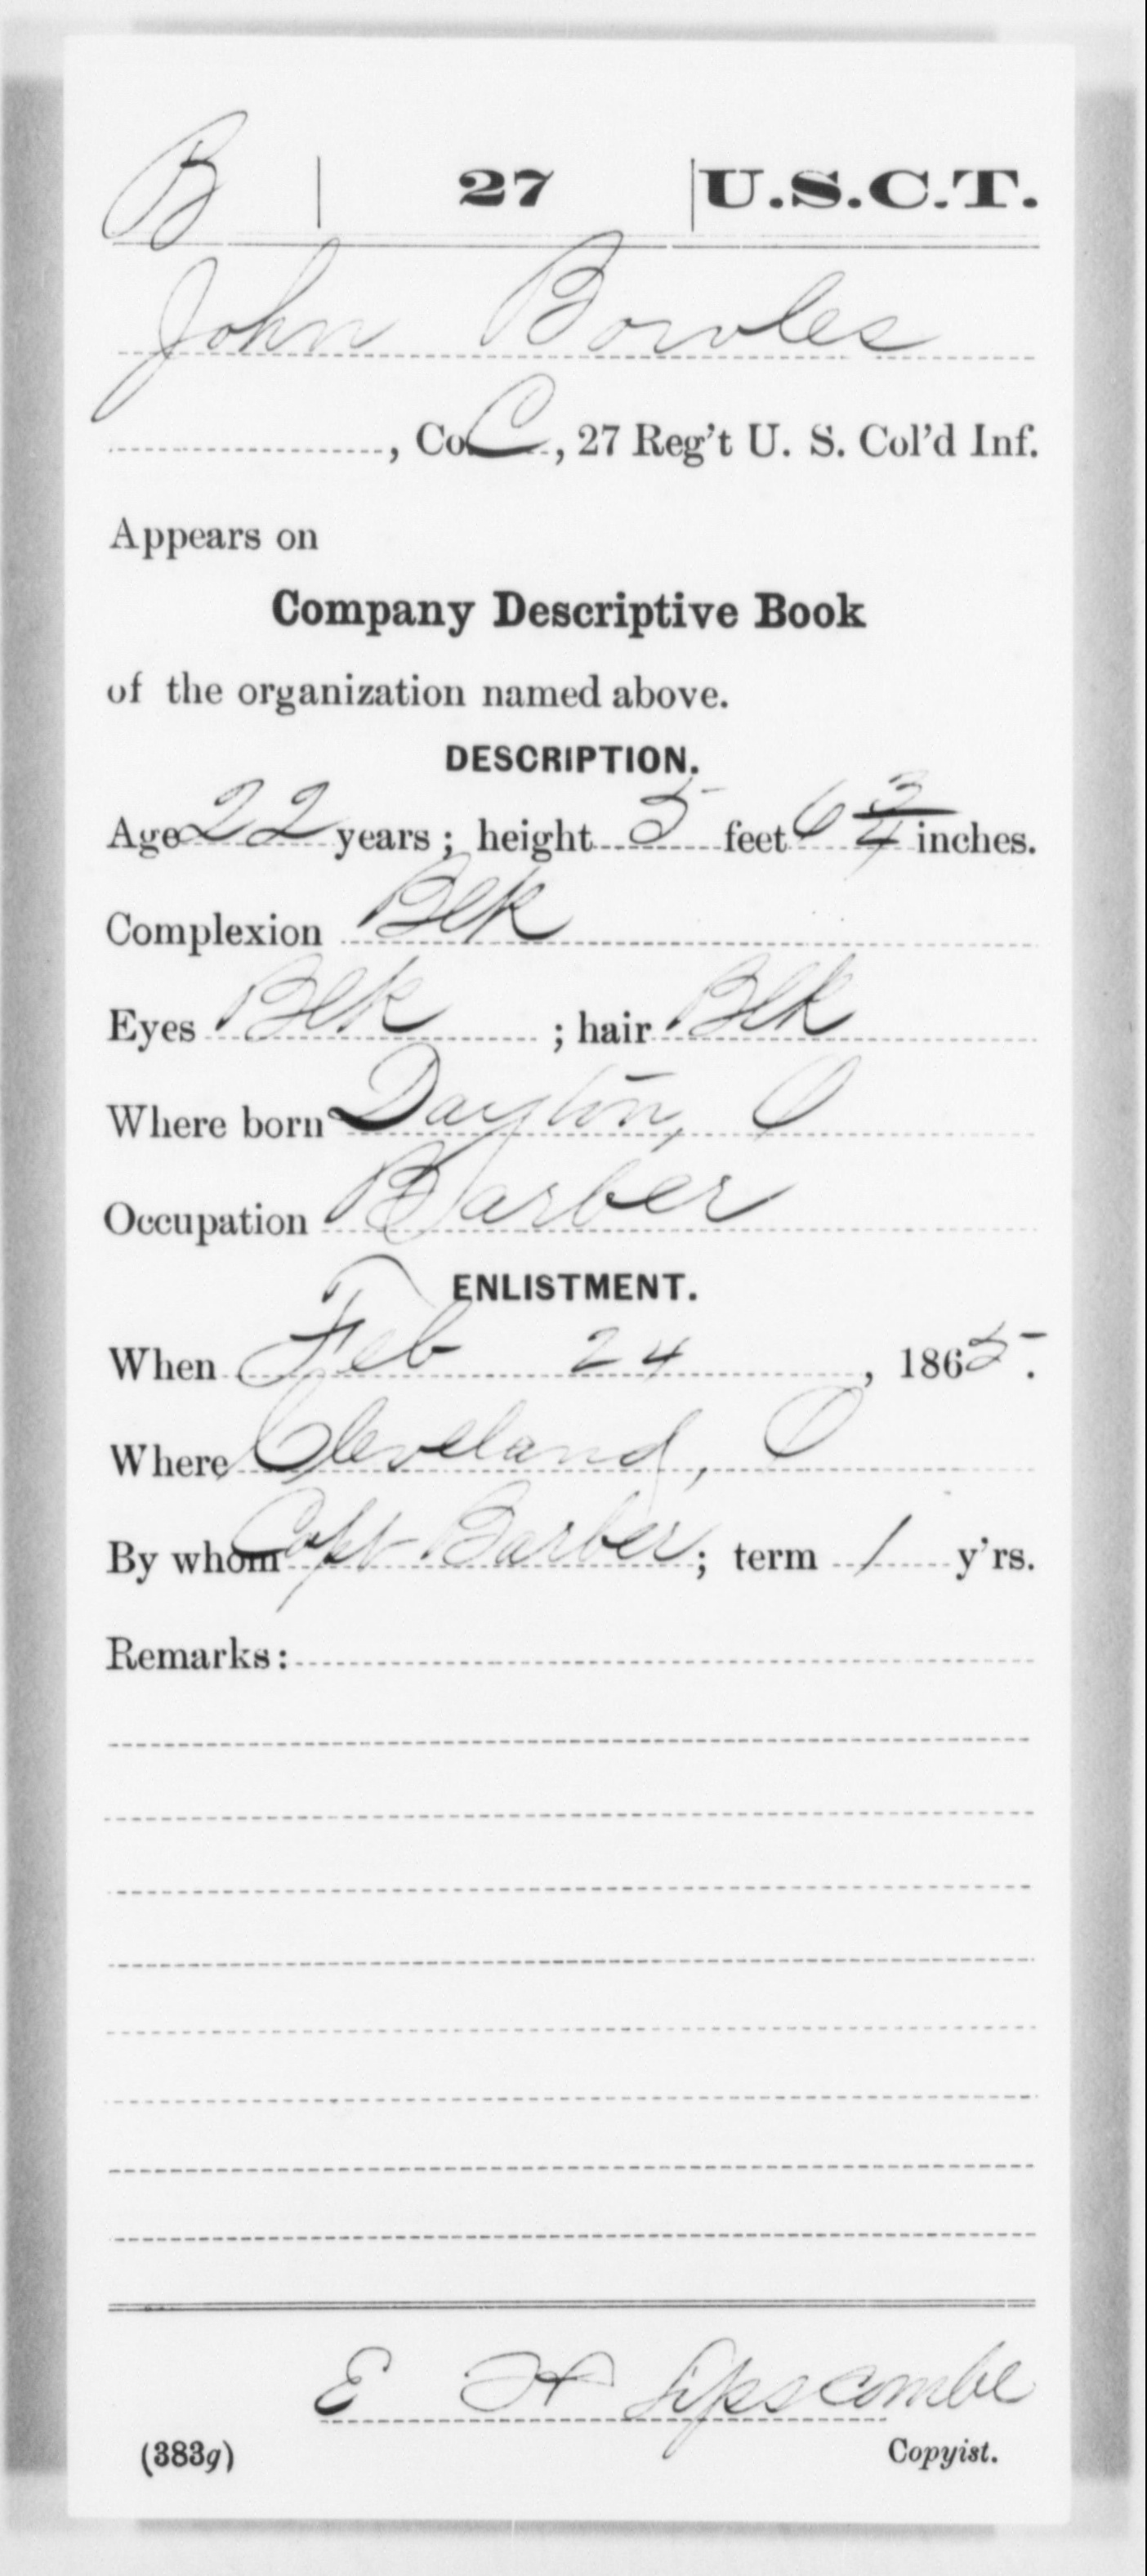 B | 27 | U.S.C.T.
John Bowles
, Co. C, 27 Reg't U. S. Col'd Inf.
Appears on
Company Descriptive Book
of the organization named above.
DESCRIPTION.
Age 22 years; height 5 feet 6 3/4 inches.
Complexion Blk
Eyes Blk ; hair Blk
Where born Dayton, O
Occupation Barber
ENLISTMENT.
When Feb 24, 1865.
Where Cleveland, O
By whom Capt Barber; term 1 y'rs.
Remarks:
E H Lipscombe
(383g) Copyist.